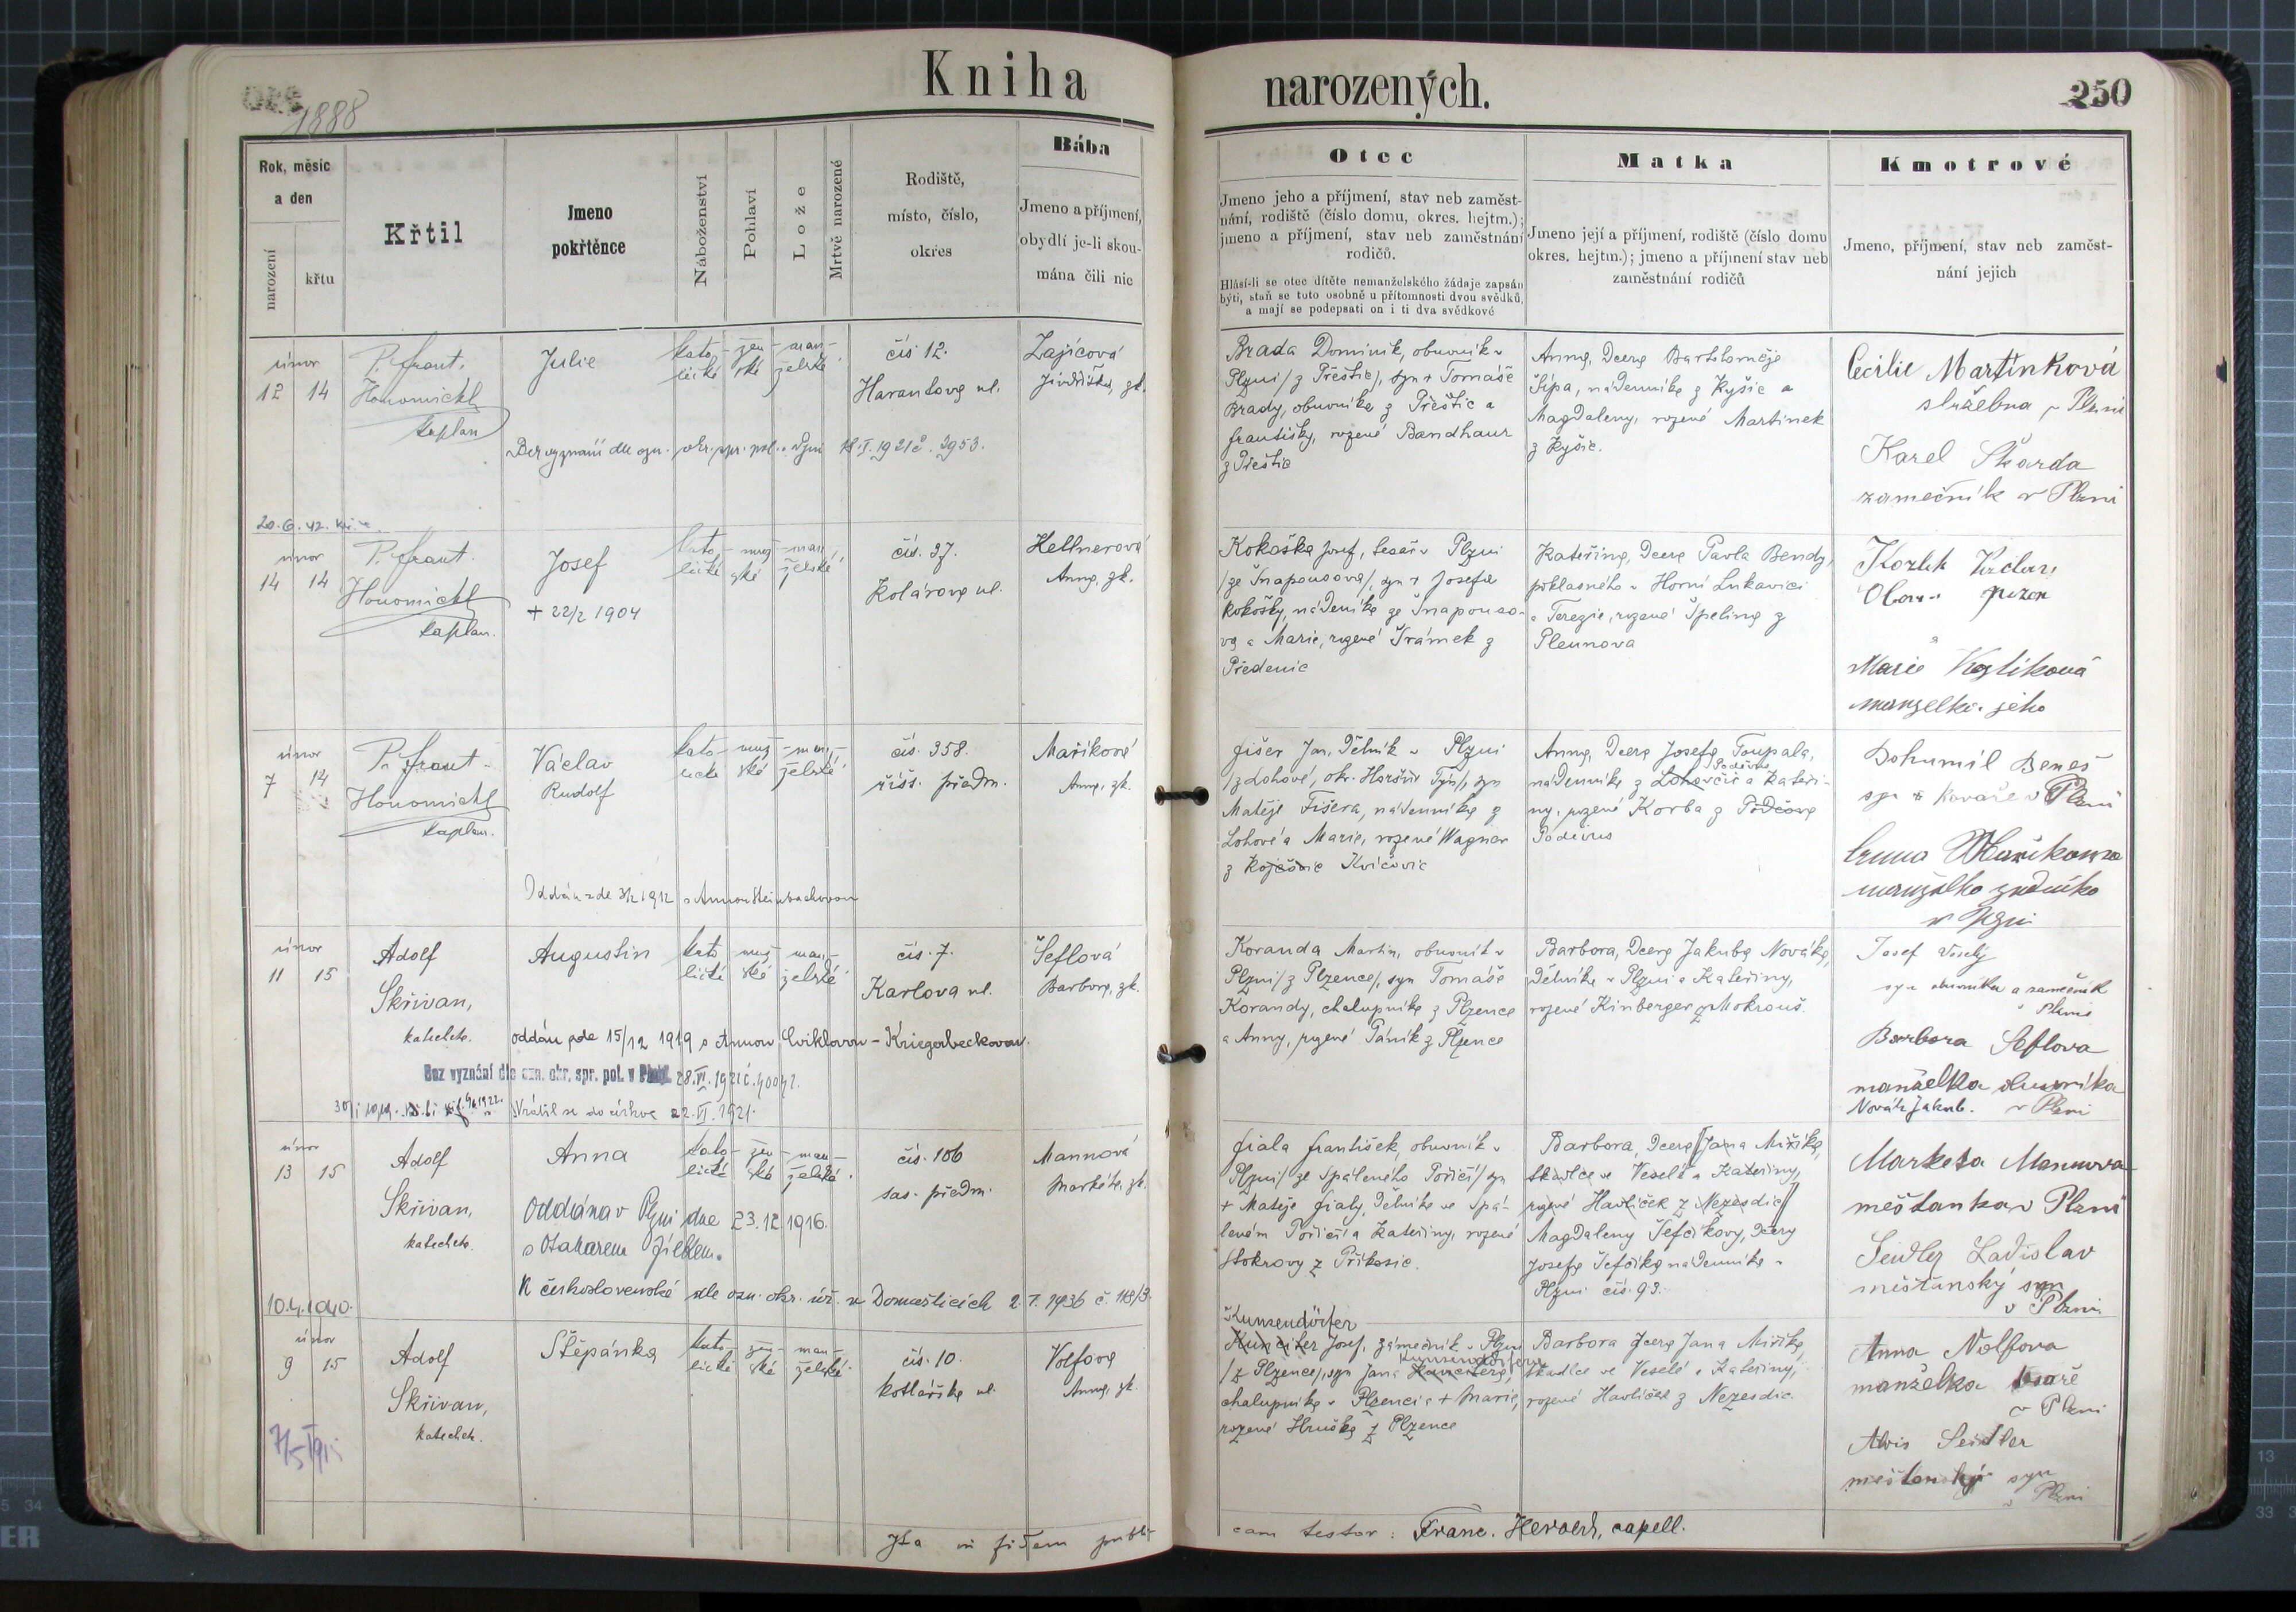 Kniha narozených.
1888
250
Rok, měsíc
a den
narození
křtu
Křtil
Jmeno
pokřtěnce
Náboženství
Pohlaví
Lože
Mrtvě narozené
Rodiště,
místo, číslo,
okres
Bába
Jmeno a příjmení,
obydlí je-li skou-
mána čili nic
Otec
Jmeno jeho a příjmení, stav neb zaměst-
nání, rodiště (číslo domu, okres. hejtm.);
jmeno a příjmení, stav neb zaměstnání
rodičů.
Hlásí-li se otec dítěte nemanželského žádaje zapsán
býti, staň se toto osobně u přítomnosti dvou svědků,
a mají se podepsati on i ti dva svědkové
Matka
Jmeno její a příjmení, rodiště (číslo domu
okres. hejtm.); jmeno a příjmení stav neb
zaměstnání rodičů
Kmotrové
Jmeno, příjmení, stav neb zaměst-
nání jejich
únor
12 14
P. Frant.
Honomichl
kaplan
Julie
kato-
lické
žen-
ské
man-
želské
čís 12.
Harantova ul.
Zajícová
Jindřiška, zk.
Bez vyznání dle ozn. okr. spr. pol. v Plzni 18.I.1921 č. 3953.
Brada Dominik, obuvník v
Plzni /z Přeštic/, syn + Tomáše
Brady, obuvníka z Přeštic a
Františky, rozené Bandhaur
z Přeštic
Anna, dcera Bartoloměje
Šípa, nádenníka z Kyšic a
Magdaleny, rozené Martinek
z Kyšic.
Cecilie Martinková
služebna v Plzni
Karel Škarda
zamečník v Plzni
20.6.42.
únor
14 14
P. Frant.
Honomichl
kaplan.
Josef
+ 22/2 1904
kato-
lické
muž-
ské
man-
želské
čís. 37.
Kolárova ul.
Hellnerová
Anna, zk.
Kokoška Josef, tesař v Plzni
/ze Šnapousova/, syn + Josefa
Kokošky, nádeníka ze Šnapouso-
va a Marie, rozené Šrámek z
Předenic
Kateřina, dcera Pavla Bendy,
poklasného v Horní Lukavici
a Terezie, rozené Špelina z
Plevnova
a
Marie Kozlíková
manzelka jeho
únor
7 14
P. Frant.
Honomichl
kaplan.
Václav
Rudolf
kato-
lické
muž-
ské
man-
želské
čís. 358.
říšs. předm.
Maříková
Anna, zk.
Oddán zde 3/2 1912 s Annou Steinbachovou
Fišer Jan, dělník v Plzni
/z Lohové, okr. Horšův Týn/, syn
Matěje Fišera, nádenníka z
Lohové a Marie, rozené Wagner
z Kvíčovic
Anna, dcera Josefa Toupala,
nádenníka z Lohovčic a Kateři-
ny, rozené Korba z
Poděvus
Bohumil Beneš
syn + kováře v Plzni
Anna Maříkowa
manželka
v Plzni
únor
11 15
Adolf
Skřivan,
katecheta.
Augustin
kato-
lické
muž-
ské
man-
želské
čís. 7.
Karlova ul.
Šeflová
Barbora, zk.
oddán zde 15/12 1919 s Annou Cviklovou - Kriegerbeckovou.
Bez vyznání dle ozn. okr. spr. pol. v Plzni 28.VI.1921 č.
Vrátil se do církve 22.VI.1921.
Koranda Martin, obuvník v
Plzni /z Plzence/, syn Tomáše
Korandy, chalupníka z Plzence
a Anny, rozené Páník z Plzence
Barbora, dcera Jakuba Nováka,
dělníka v Plzni a Kateřiny,
rozené Kinberger z Mokrouš.
Josef Veselý
syn obuvníka a zamečník
v Plzni
Barbora Seflova
manželka obuvníka
Novák Jakub. v Plzni
únor
13 15
Adolf
Skřivan,
katecheta.
Anna
kato-
lické
žen-
ské
man-
želské
čís. 106
sas. předm.
Mannová
Markéta, zk.
Oddána v Plzni dne 23.12.1916.
s Otakarem Jílkem.
K československé dle ozn. okr. úř. v Domažlicích 2.7.1936 č. 118/3.
10.4.1940.
Fiala František, obuvník v
Plzni /ze Spáleného Poříčí/ syn
+ Matěje Fialy, dělníka ve Spá-
leném Poříčí a Kateřiny, rozené
Stokrovy z Příkosic.
Barbora, dcera Jana Miříka,
tkadlce ve Veselé a Kateřiny,
rozené Havlíček z Nezesdic
Magdaleny Šefčíkovy, dcery
Josefa Šefčíka nádenníka v
Plzni čís. 93.
Marketa Mannova
meštanka v Plzni
Seidler Ladislav
měšťanský syn
v Plzni
únor
9 15
Adolf
Skřivan,
katecheta.
Štěpánka
kato-
lické
žen-
ské
man-
želské
čís. 10.
kotlářska ul.
Volfova
Anna, zk.
Kunzendörfer
Josef, zámečník v Plzni
/z Plzence/, syn Jana
chalupníka v Plzenci a + Marie,
rozené Hruška z Plzence
Barbora dcera Jana Miříka,
tkadlce ve Veselé a Kateřiny,
rozené Havlíček z Nezesdic
Anna Nolfova
manželka
v Plzni
Alois Seidler
meštanský syn
v Plzni
Ita in fidem publi-
cam testor: Franc. Herold, capell.